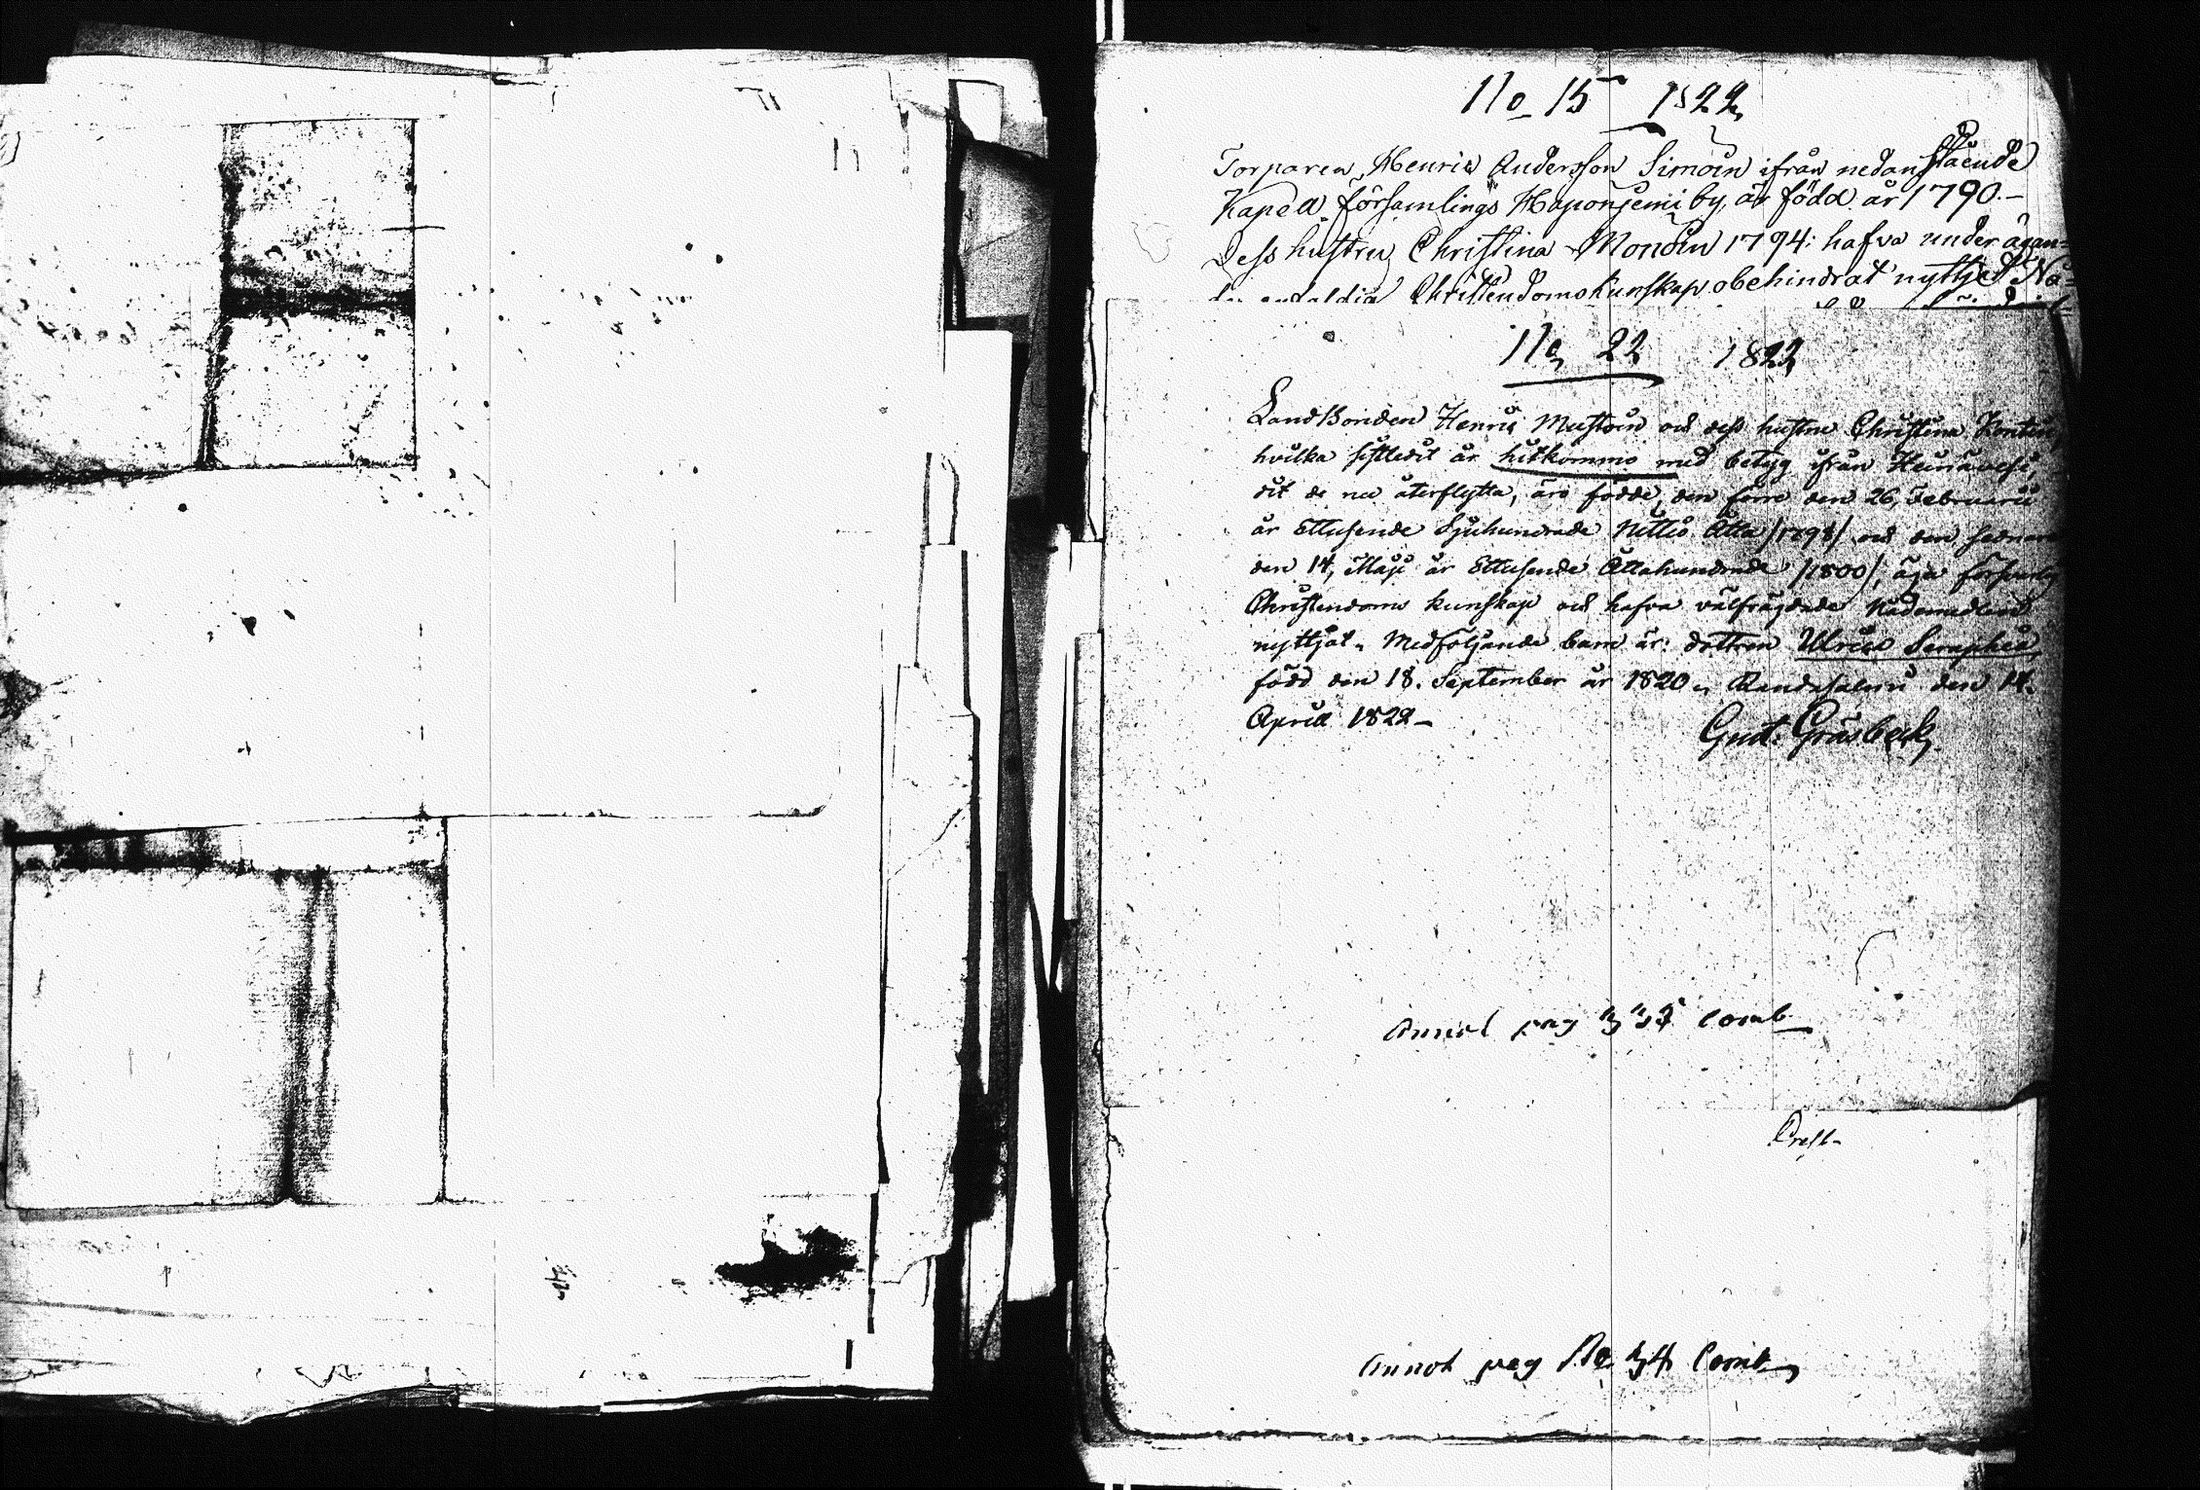 No 15 1822
Torparen Henric Andersson Simoin ifrån nedanstående
Kapell församlings Haponjemi by, är född år 1790.-
Dess hustru Christina Monoin 1794: hafva under ägan-
Christendomskunskap obehindrat nyttjat Nå-
No 22 1822
Landbonden Henric Mustoin och dess hustru Christina Kontin,
hvilka sistledit år hitkommo med betyg ifrån Heinävesi,
dit de nu återflytta, äro födde, den förre den 26, Februarii
år Ettusende Sjuhundrade Nittio Åtta /1798/ och den sednare
den 14, Maji år Ettusende Åttahundrade /1800/, äga försvarlig
Christendoms kunskap och hafva välfrägdade Nådemedlen
nyttjat. Medföljande barn är: dottren Ulrica Seraphia,
född den 18. September år 1820. Randasalmi den 14.
April 1822-
Gust: Gråsbeck
Annot pag comb
Prest-
Annot pag No 34 comb